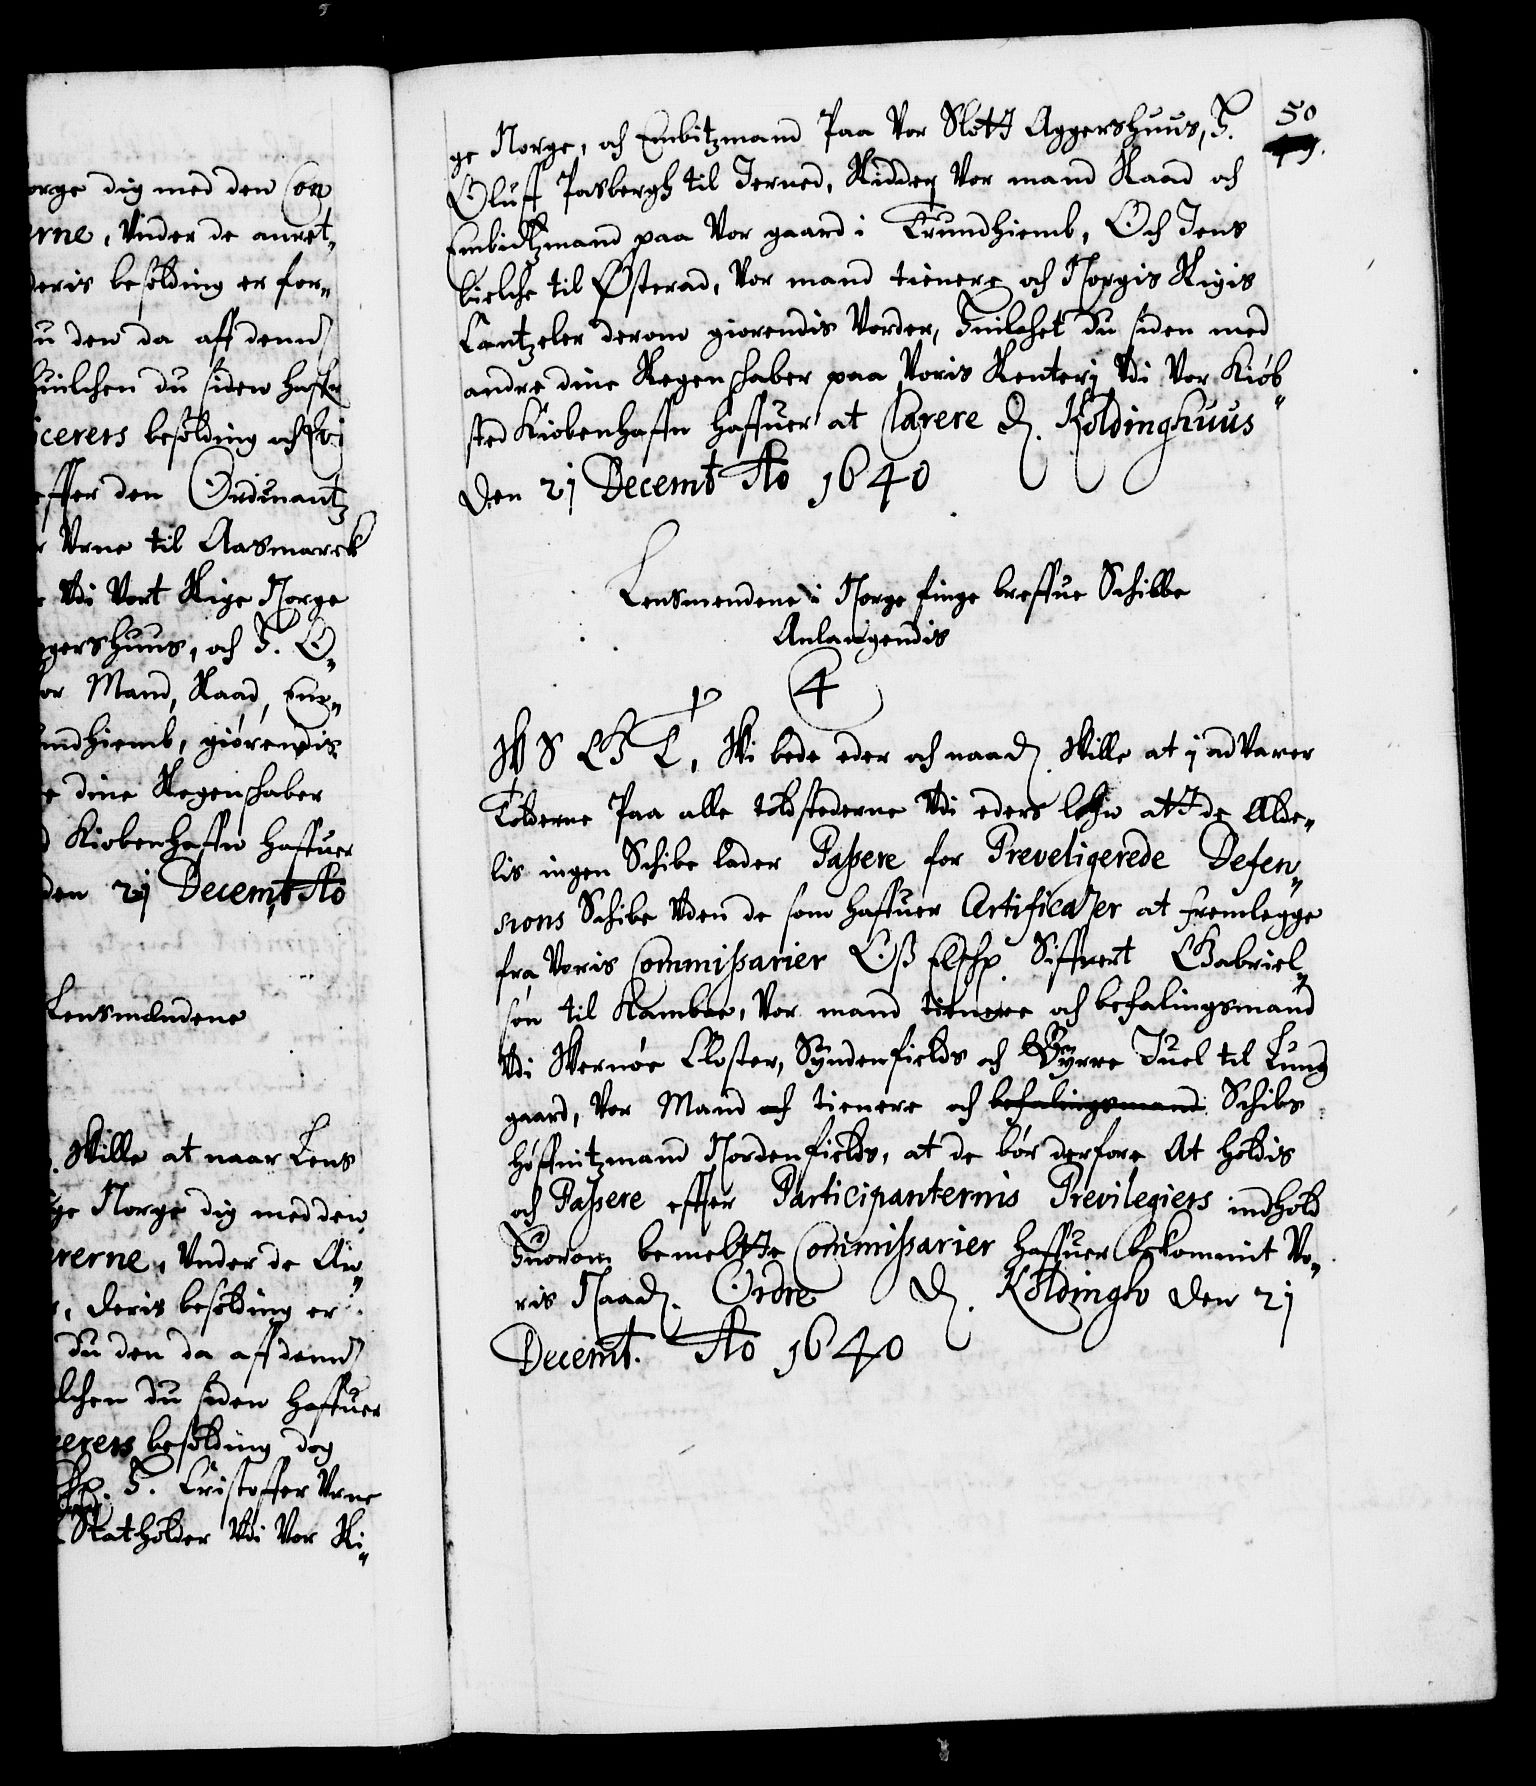 orge dig med den Con
erne, Vnder de anret„
deris besolding er for„
u den da aff dennd
huilchen du siden haffr
icerers besolding och
effter den Ordinantz
r Vrne til Aasmarck
Vdi Vort Rige Norge
ggershuus, och H. O„
or Mand, Raad, Em„
undhiemb, giörendis
e dine Regenschaber
d Kiobenhaffn haffuer
den 21 Decemt Ao
Lensmændene
. Wille at naar Lens
ge Norge dig med den
rerne, Vnder de An„
, deris besolding er
du den da aff dennd
lchen du siden haffuer
cerers besolding dog
H. Cristoffer Vrne
Statholder Vdi Vor Ri„
50
ge Norge, och Embitzmand Paa Vor Slott Aggershuus, H.
Oluff Pasbergh til Jerned, Ridder Vor mand Raad och
Embidtzmand paa Vor gaard i Trundhiemb, Och Jens
bielche til Østerad, Vor mand tienere och Norgis Rigis
Cantzeler derom giorendis Vorder, Huilchet du siden med
andre dine Regenschaber paa Voris Renterj Vdi Vor Kiöb„
sted Kiobenhaffn haffuer at Clarere D. Koldinghuus
Den 21 Decemb Ao 1640
Lensmendene i Norge finge breffue Schibbe
Anlangendis
4
W S G T, Wi bede eder och naad. Wille at j advarer
Tolderne Paa alle toldstederne Vdi eders lehn att de Alde„
lis ingen Schibe lader Passere for Preveligerede Defen„
sions Schibe Vden de som haffuer Certificatzer at fremlegge
fra Voris Commissarier Oss Elschel. Siffuert Gabriel„
søn til Kambøe, Vor mand tienere och befalingsmand
Vdi Wernöe Closter, Syndenfields och Byrre Juel til Lung
gaard, Vor Mand och tienere och befalingsmand Schibs
Höffuitzmand Nordenfields, at de bör derfore At holdis
och Passere effter Participanternis Previlegiers indhold
Huorom bemelte Commissarier haffuer bekommit Vo„
ris Naad. Ordre D. Koldingh den 21
Decemt. Ao 1640